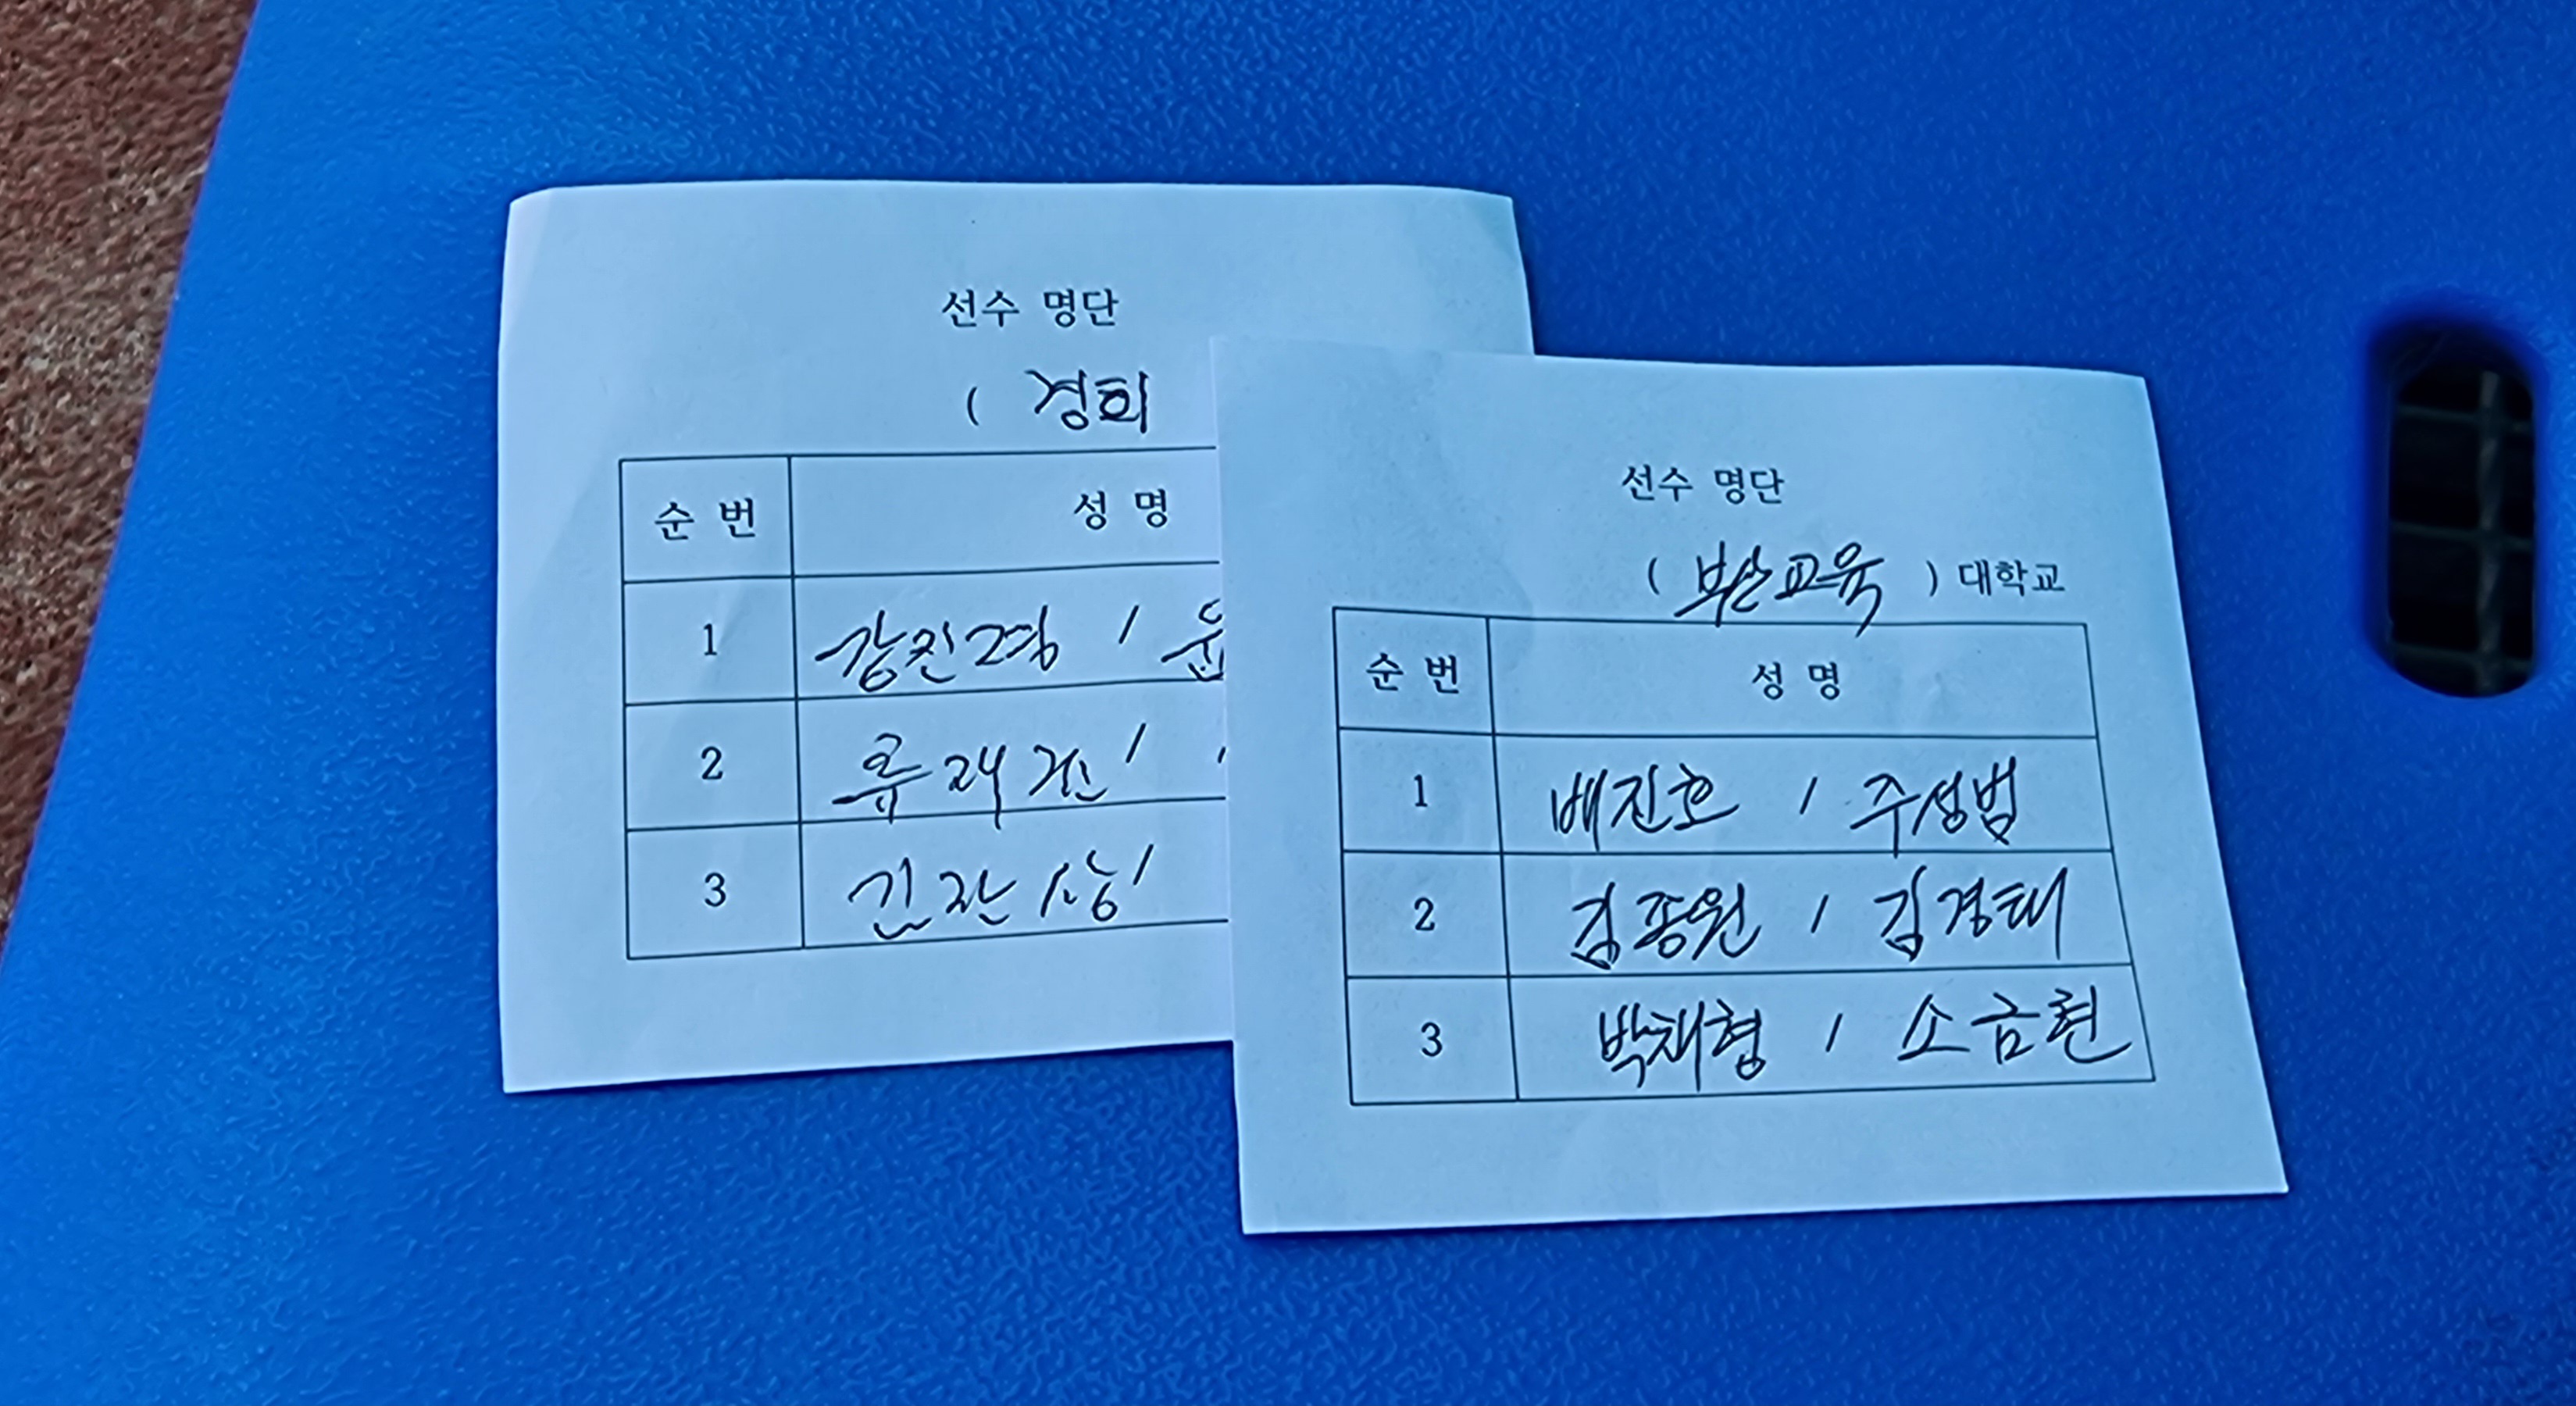 선수 명단
( 경희
순 번 성 명
1 강진명 /
2 류재건 /
3 김찬상 /
선수 명단
( 부산교육 ) 대학교
순 번 성 명
1 배진호 / 주성범
2 김종원 / 김경태
3 박채형 / 소금현